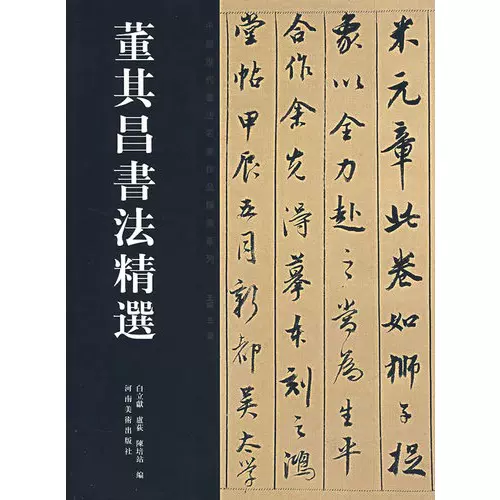 董其昌書法精選
白立獻 盧荻 陳培站 編
河南美術出版社
米元章此卷如獅子捉
象以全力赴之當為生平
合作余先得摹本刻之鴻
堂帖甲辰五月新都吳太學